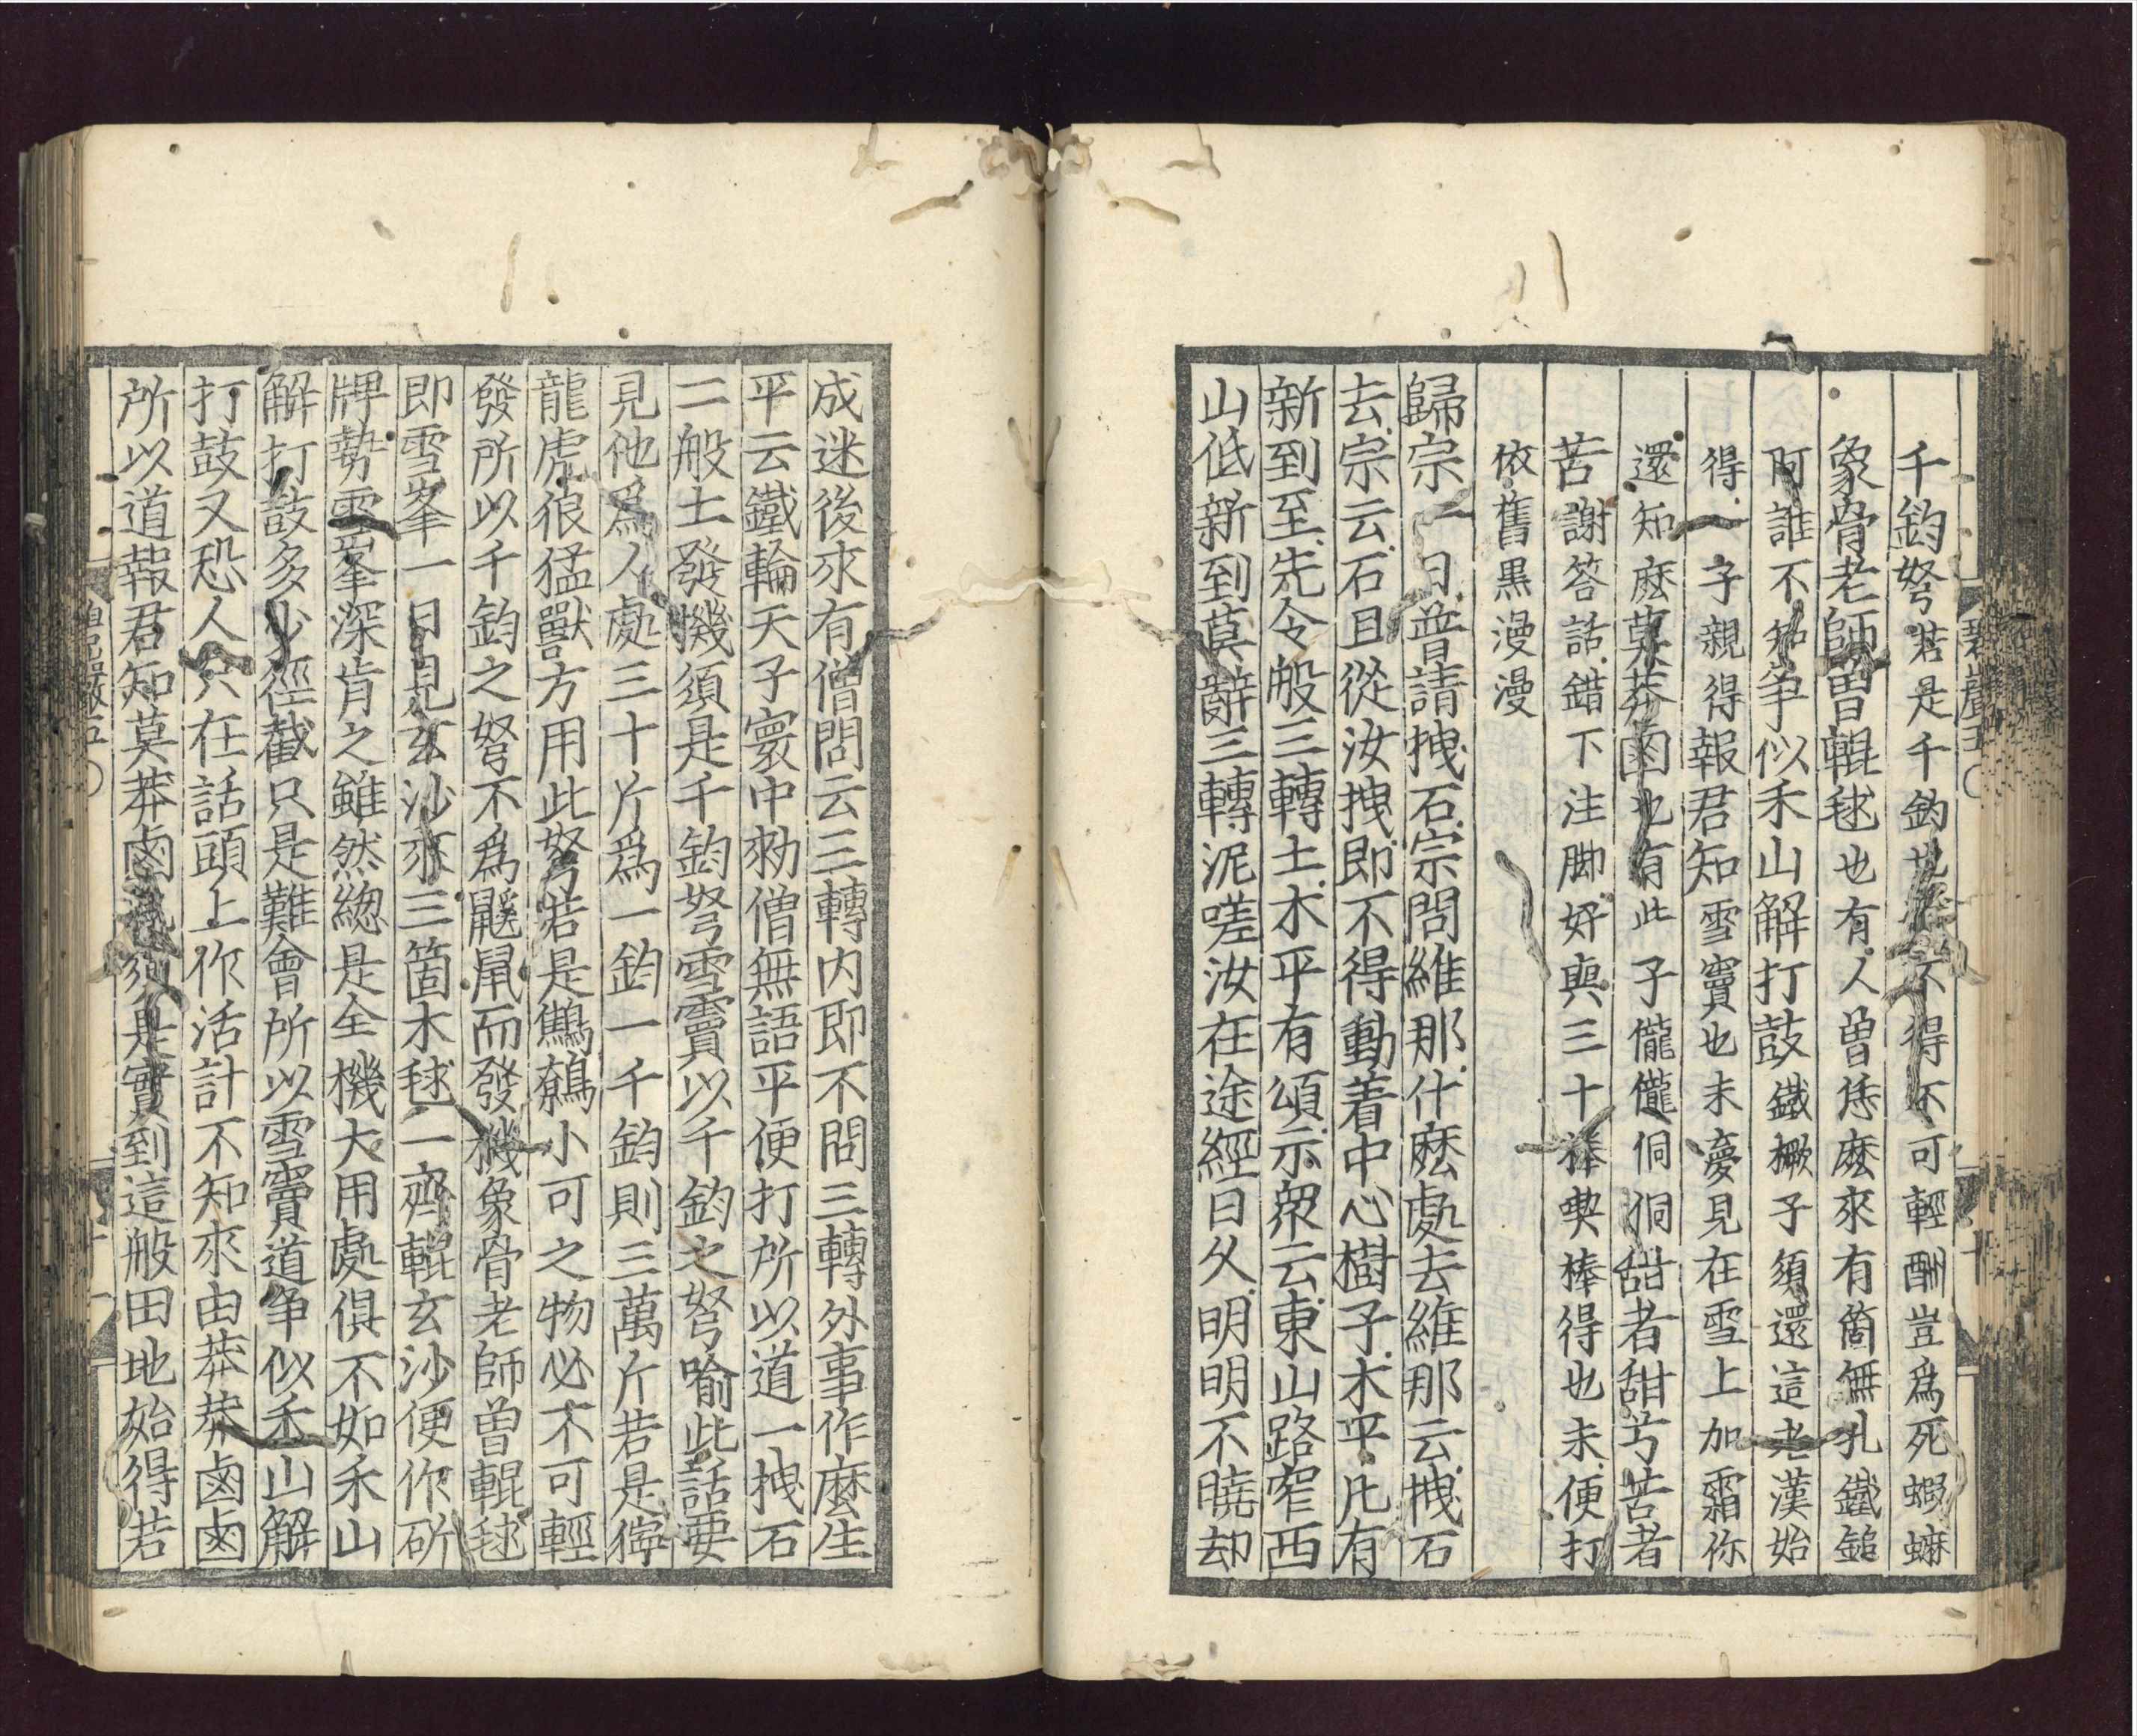 千鈞弩若是千鈞也不得不可輕酬豈爲死蝦蟆
象骨老師曽輥毬也有人曽恁麽來有箇無孔鐵鎚
阿誰不知争似禾山解打鼓鐵橛子須還這老漢始
得一子親得報君知雪竇也未夢見在雪上加霜你
還知麽莫莽鹵也有此子儱儱侗侗甜者甜兮苦者
苦謝答話錯下注脚好與三十棒喫棒得也未便打
依舊黒漫漫
歸宗一日普請拽石宗問維那什麽處去維那云拽石
去宗云石且從汝拽即不得動着中心樹子木平凡有
新到至先令般三轉土木平有頌示衆云東山路窄西
山低新到莫辭三轉泥嗟汝在途經日久明明不曉却
碧岩五
成迷後來有僧問云三轉内即不問三轉外事作麽生
平云鐵輪天子寰中勑僧無語平便打所以道一拽石
二般土發機須是千鈞弩雪竇以千鈞之弩喻此話要
見他爲人處三十斤爲一鈞一千鈞則三萬斤若是獰
龍虎狼猛獸方用此弩若是鷦鷯小可之物必不可輕
發所以千鈞之弩不爲鼷鼠而發機象骨老師曽輥毬
即雪峯一日見玄沙來三箇木毬一齊輥玄沙便作斫
牌勢雪峯深肯之雖然緫是全機大用處俱不如禾山
解打鼓多少徑截只是難會所以雪竇道争似禾山解
打鼓又恐人只在話頭上作活計不知來由莽莽鹵鹵
所以道報君知莫莽鹵也須是實到這般田地始得若